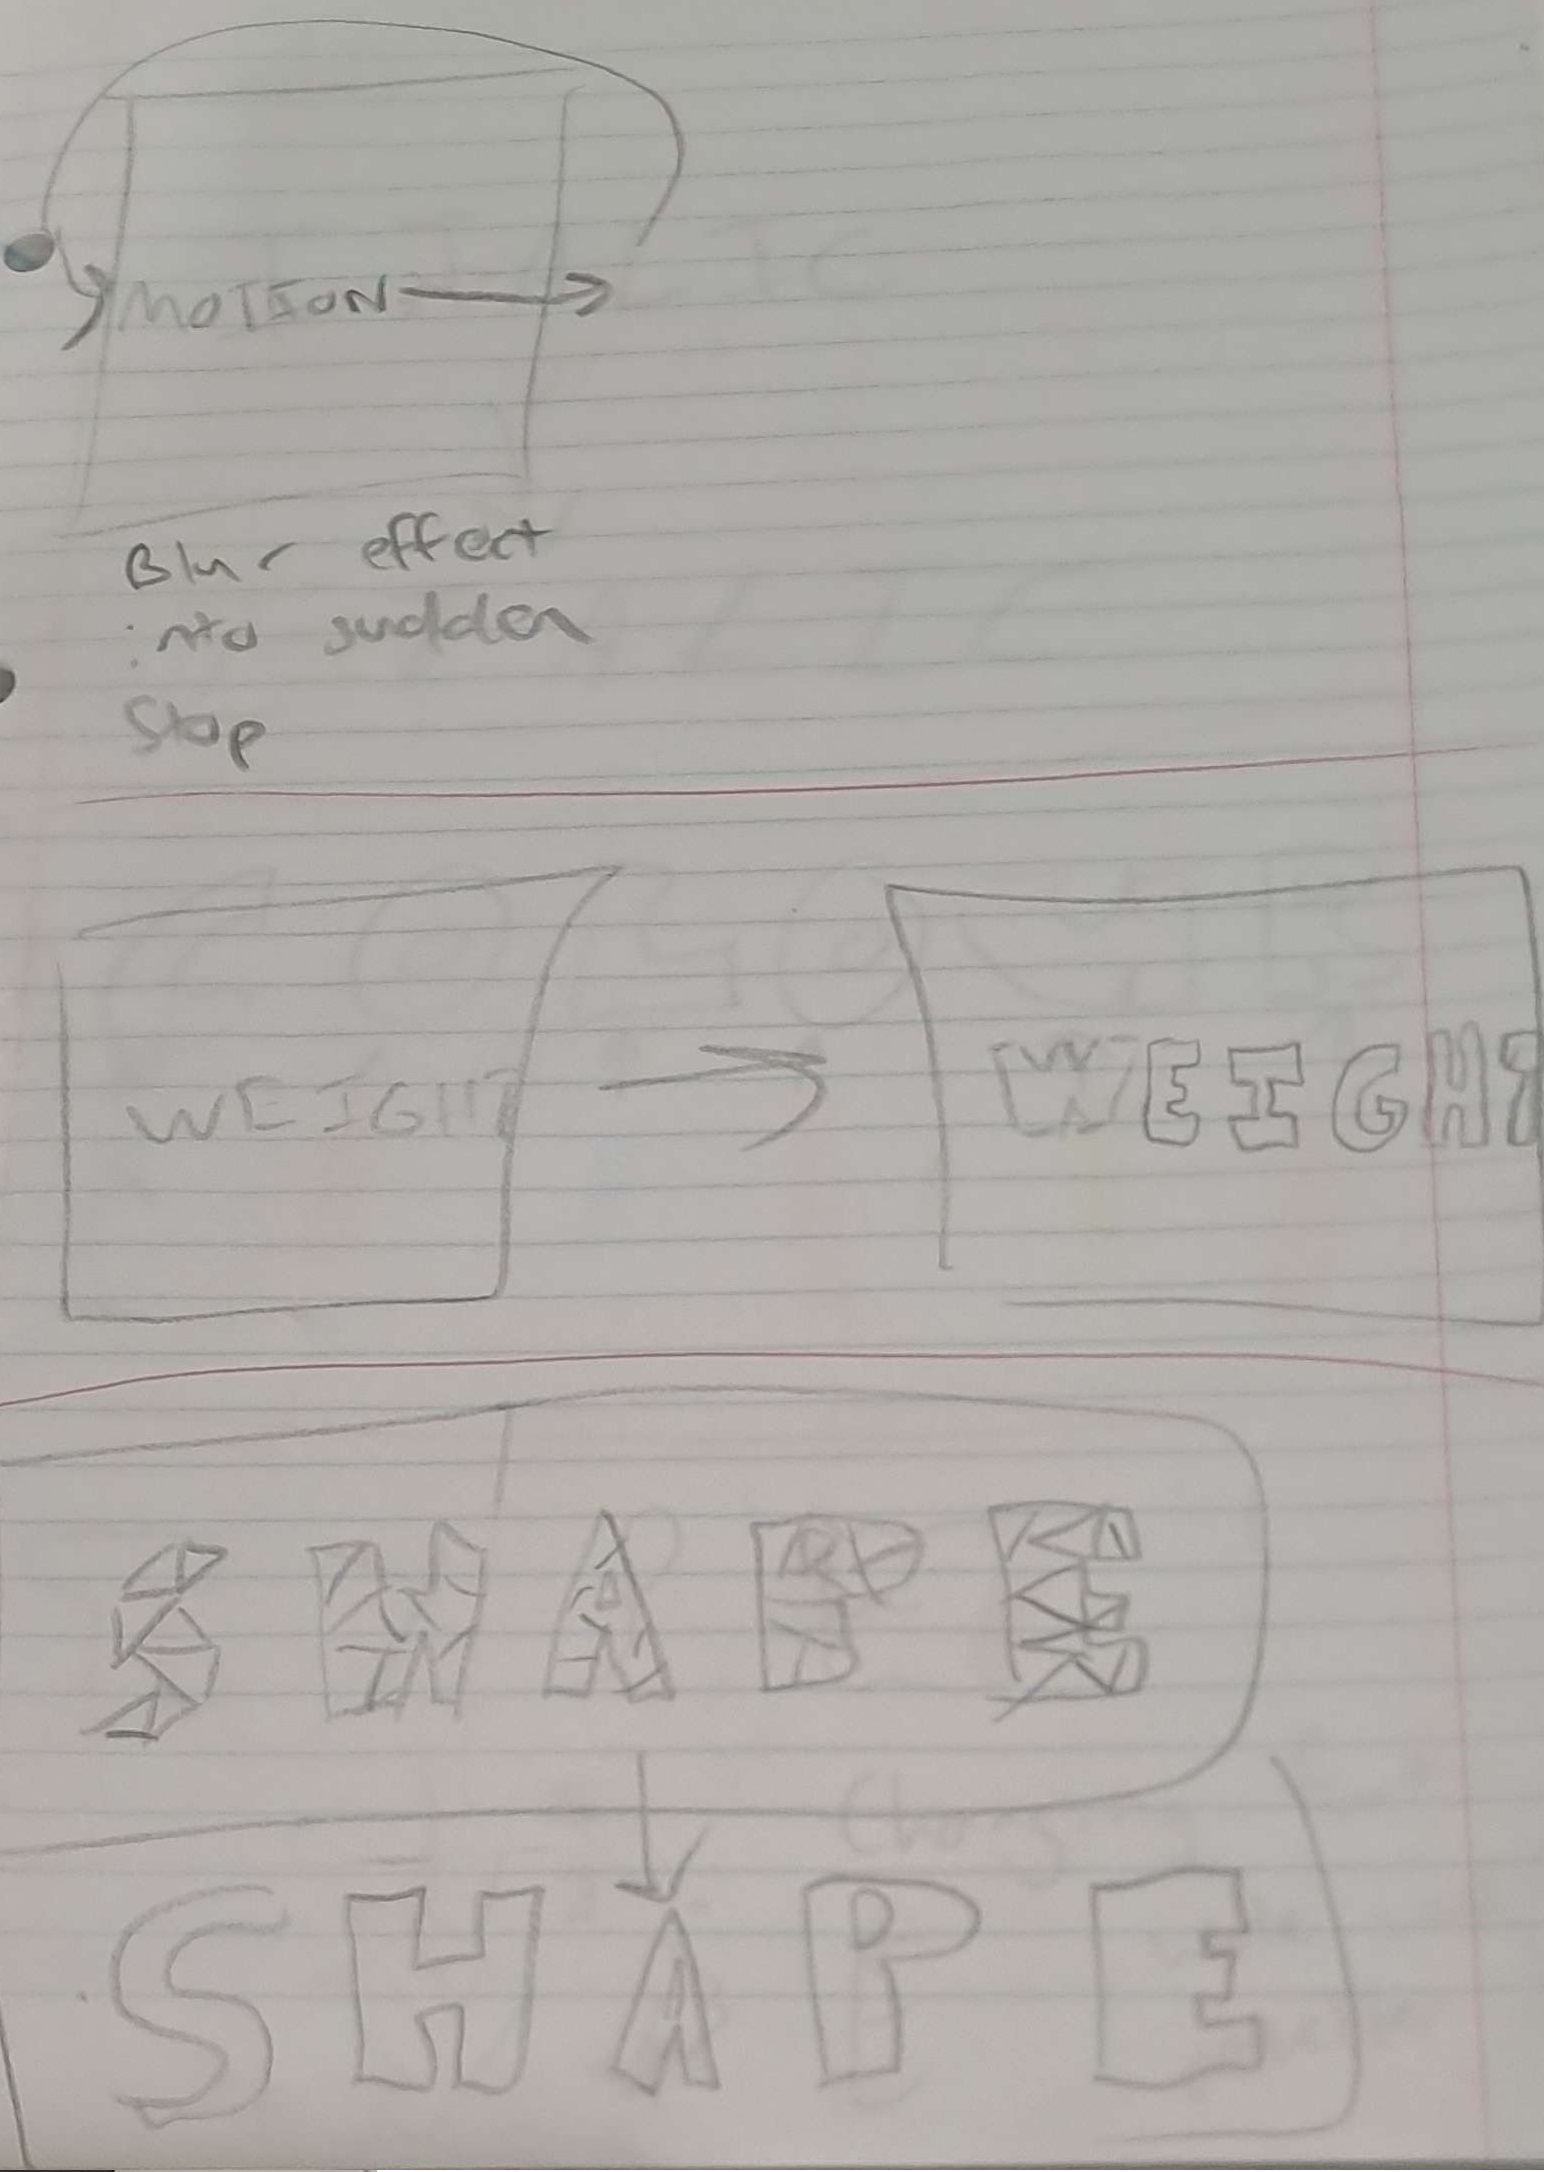 MOTION
Blur effect
into sudden
Stop
WEIGHT WEIGHT
SHAPE
SHAPE